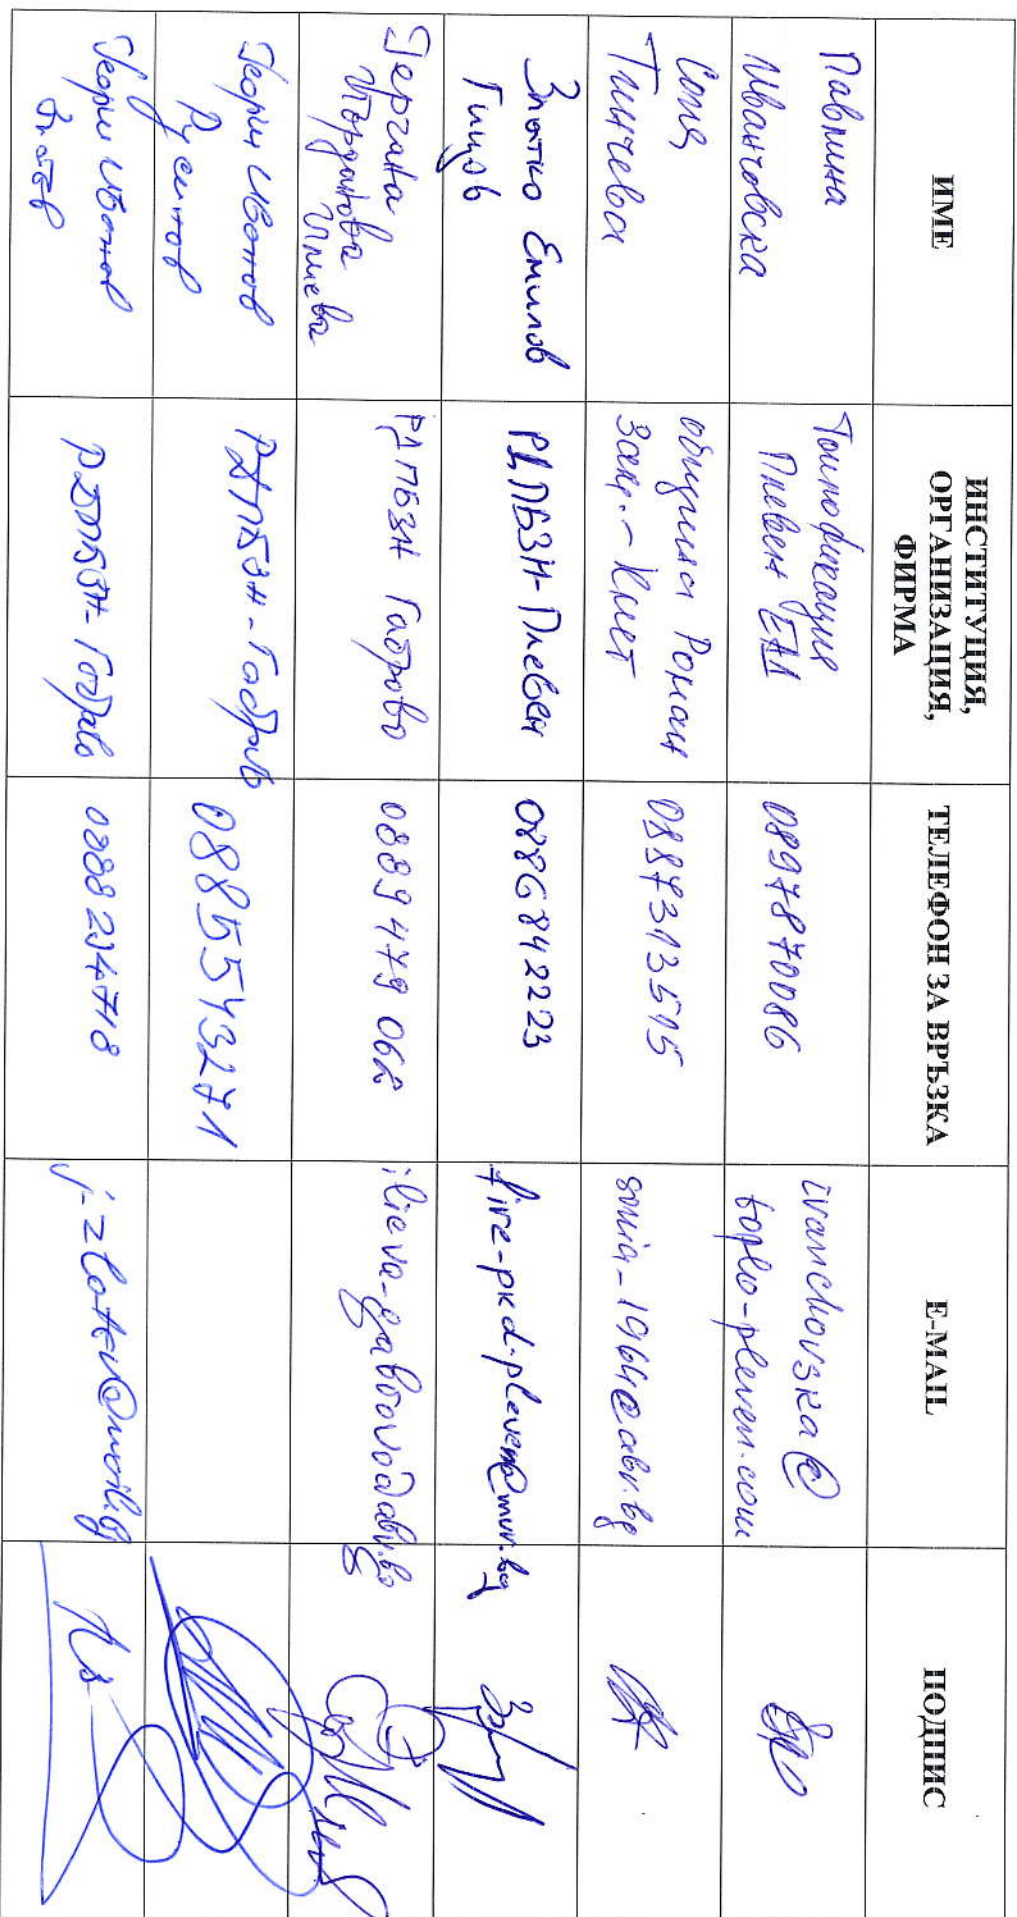 ИМЕ
ИНСТИТУЦИЯ,
ОРГАНИЗАЦИЯ,
ФИРМА
ТЕЛЕФОН ЗА ВРЪЗКА
E-MAIL
ПОДПИС
Павлина
Иванчовска
Топлофикация
Плевен ЕАД
0897870086
ivanchovska@
toplo-pleven.com
Соня
Тинчева
община Роман
Кмет
0887313515
sonia_1964@abv.bg
Златко Емилов
Гицов
РДПБЗН-Плевен
0886842223
fire-pkd-pleven@mvr.bg
Гергана
Йорданова
Илиева
РДПБЗН Габрово
0889 479 062
ilieva_gabrovo@abv.bg
Георги Иванов
Русинов
РДПБЗН-Габрово
0885543271
Георги Иванов
Златев
РДПБЗН-Габрово
j_zlatev@mail.bg